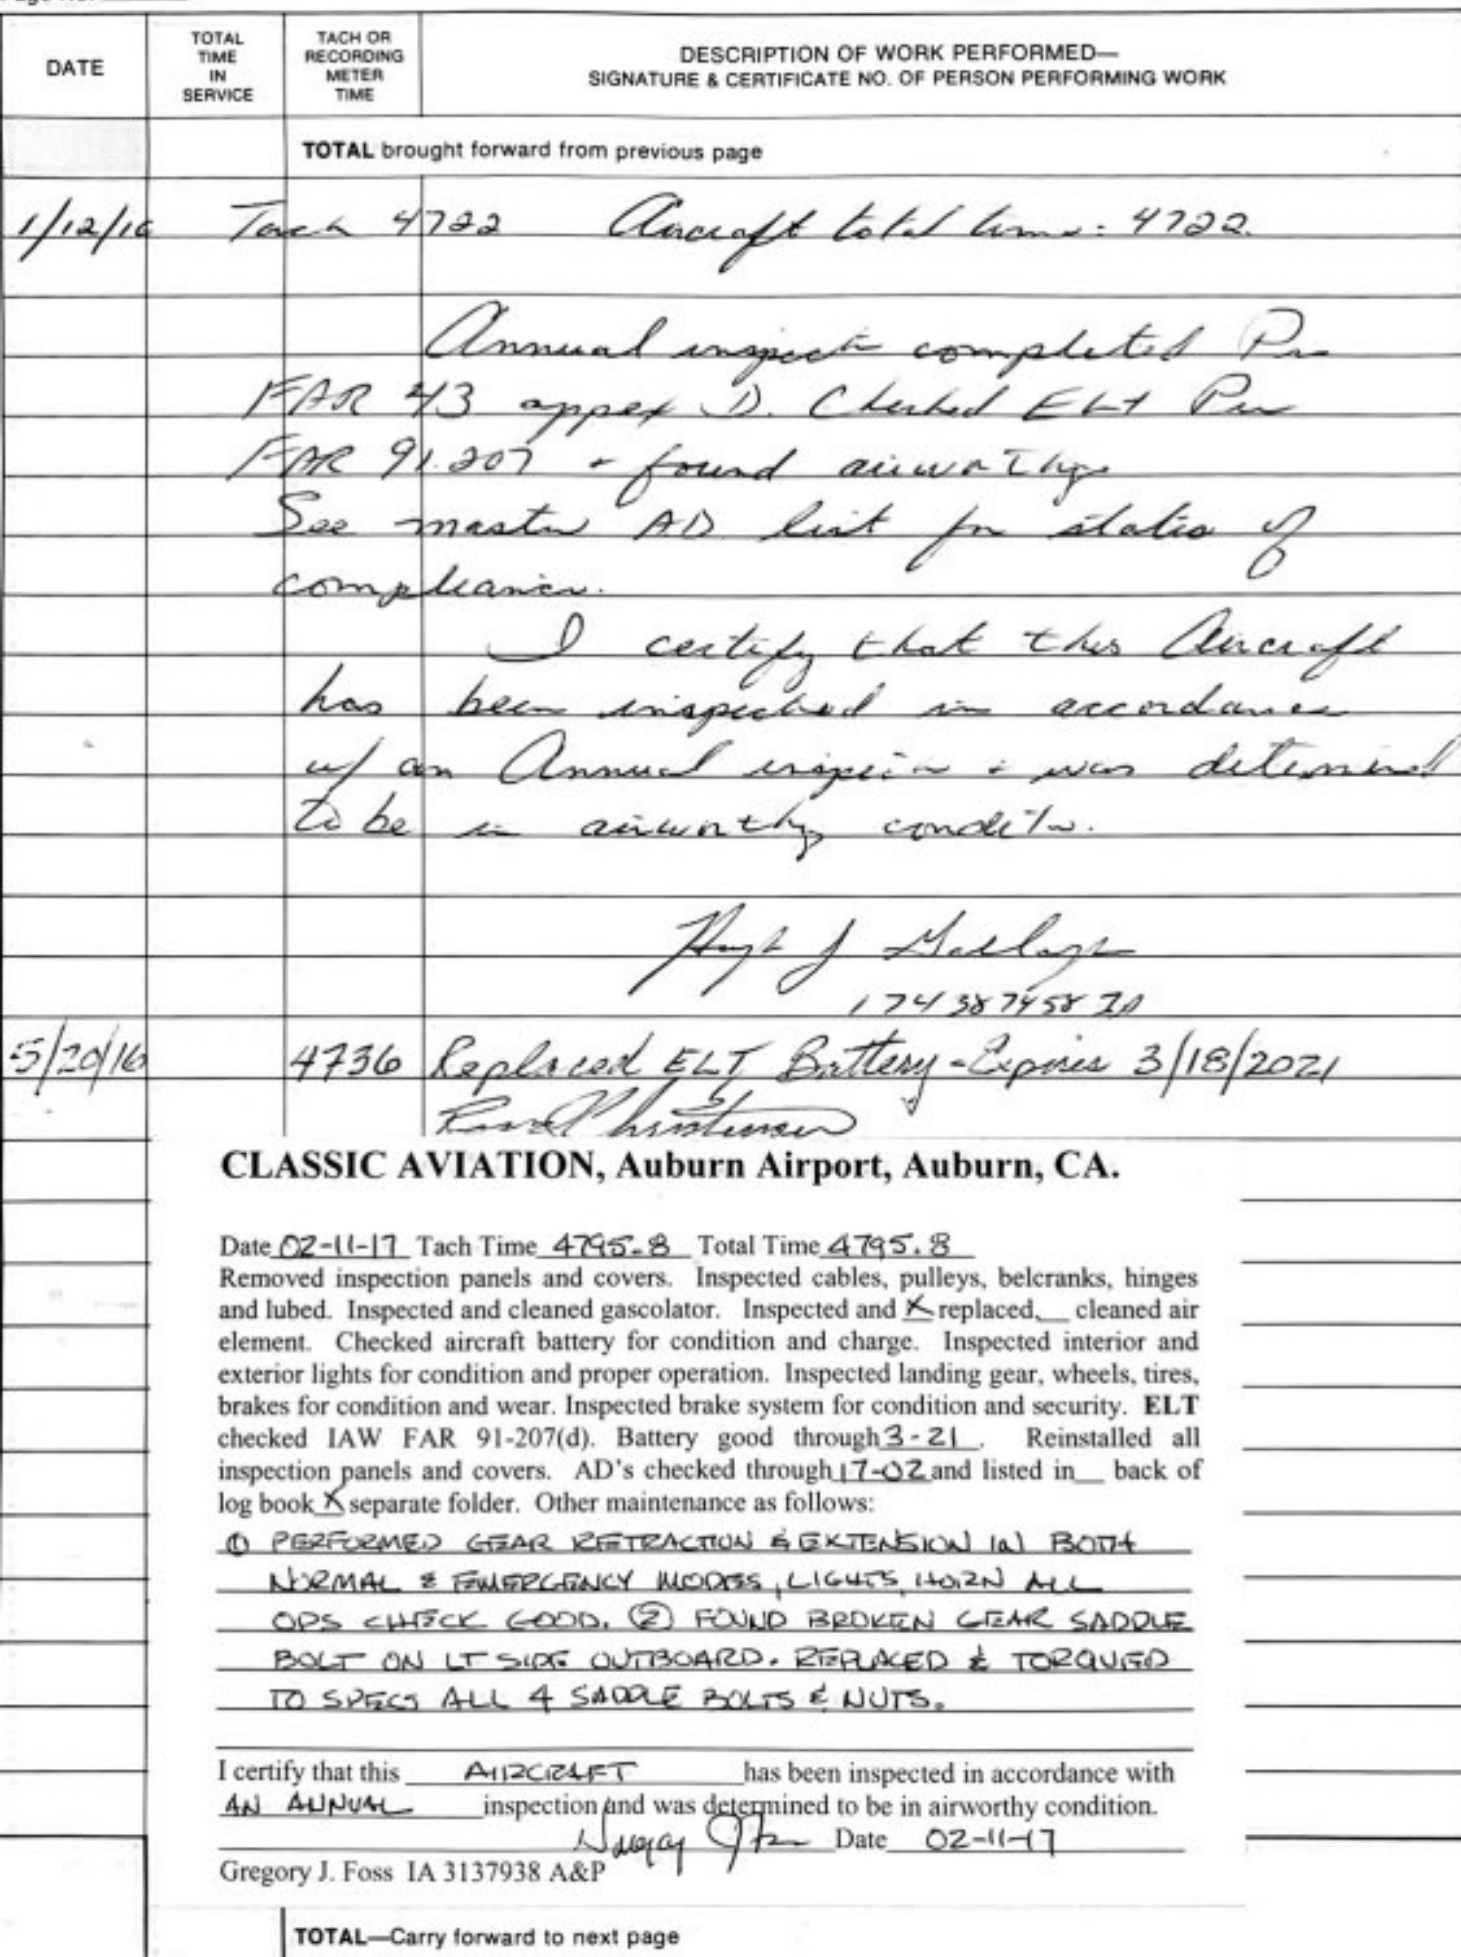 DATE
TOTAL TIME IN SERVICE
TACH OR RECORDING METER TIME
DESCRIPTION OF WORK PERFORMED—
SIGNATURE & CERTIFICATE NO. OF PERSON PERFORMING WORK
TOTAL brought forward from previous page
1/12/16 Tach 4722 Aircraft total time: 4722.
Annual inspect completed Per
FAR 43 appex D. Checked ELT Per
FAR 91.207 + found airworthy
See master AD list for status of
compliance.
I certify that this Aircraft
has been inspected in accordance
w/ an Annual inspection + was determined
to be in airworthy condition.
Hugh J
174387458 IA
5/20/16 4736 Replaced ELT Battery-Expires 3/18/2021
Christensen
CLASSIC AVIATION, Auburn Airport, Auburn, CA.
Date 02-11-17 Tach Time 4795.8 Total Time 4795.8
Removed inspection panels and covers. Inspected cables, pulleys, belcranks, hinges
and lubed. Inspected and cleaned gascolator. Inspected and X replaced,__ cleaned air
element. Checked aircraft battery for condition and charge. Inspected interior and
exterior lights for condition and proper operation. Inspected landing gear, wheels, tires,
brakes for condition and wear. Inspected brake system for condition and security. ELT
checked IAW FAR 91-207(d). Battery good through 3-21. Reinstalled all
inspection panels and covers. AD's checked through 17-02 and listed in__ back of
log book X separate folder. Other maintenance as follows:
① PERFORMED GEAR RETRACTION & EXTENSION IN BOTH
NORMAL & EMERGENCY MODES, LIGHTS, HORN ALL
OPS CHECK GOOD. ② FOUND BROKEN GEAR SADDLE
BOLT ON LT SIDE OUTBOARD. REPLACED & TORQUED
TO SPECS ALL 4 SADDLE BOLTS & NUTS.
I certify that this AIRCRAFT has been inspected in accordance with
AN ANNUAL inspection and was determined to be in airworthy condition.
Date 02-11-17
Gregory J. Foss IA 3137938 A&P
TOTAL—Carry forward to next page